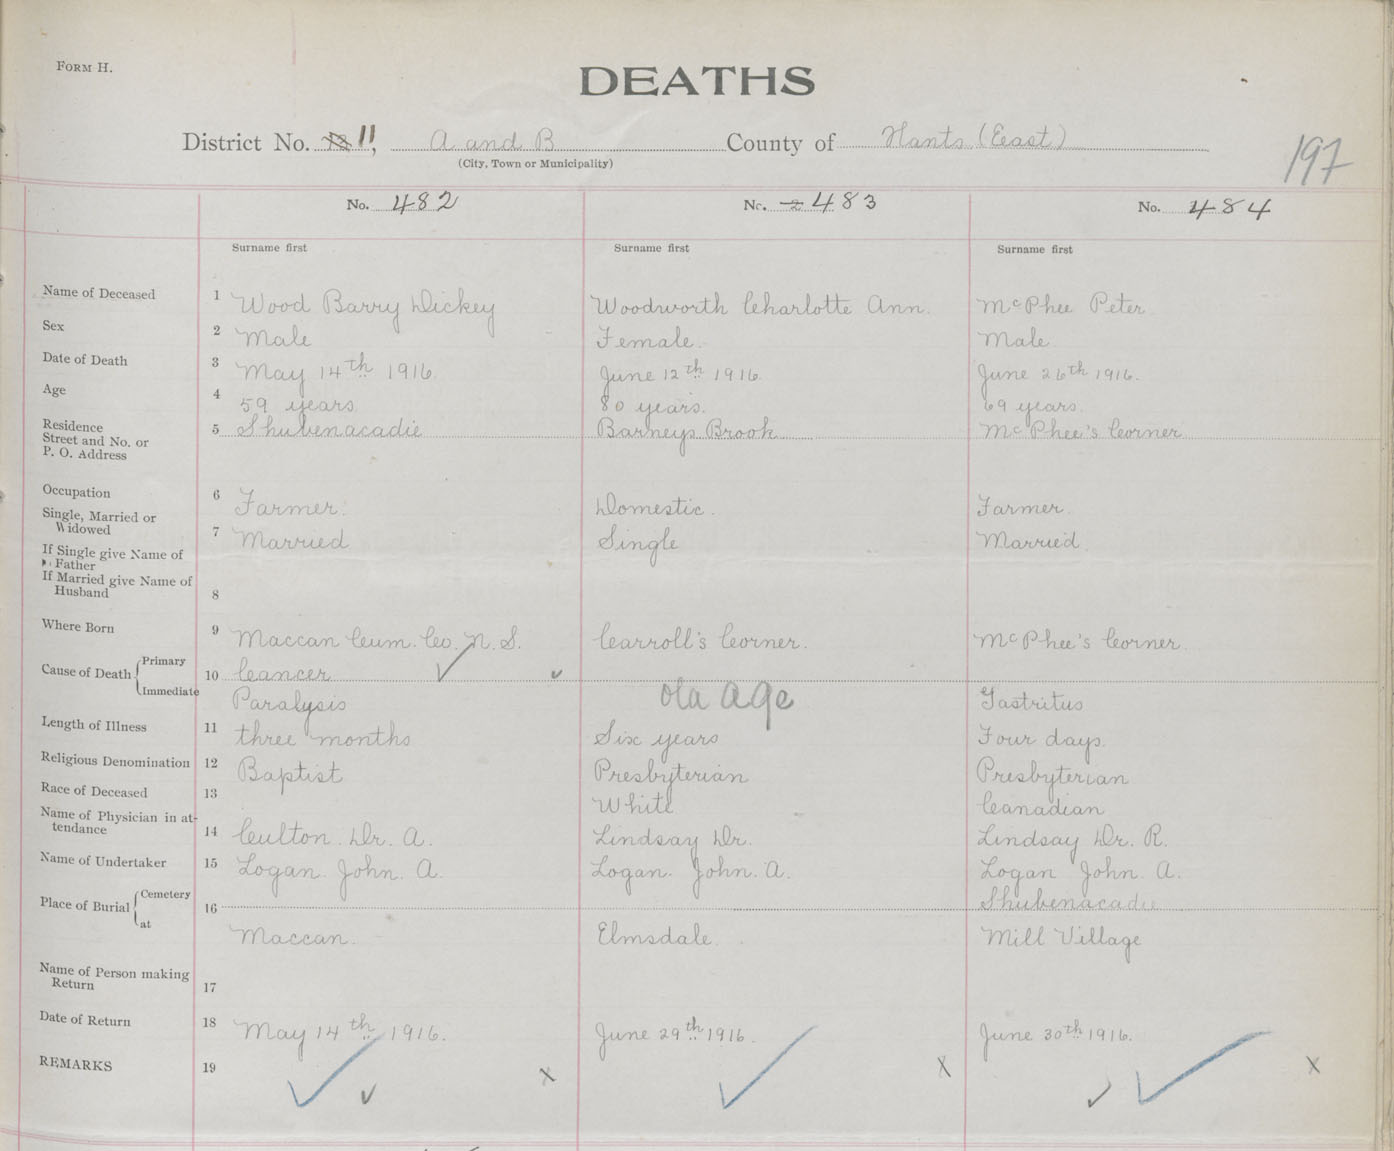 Form H.
DEATHS
District No. 11, A and B County of Hants (East)
(City, Town or Municipality)
197
No. 482 No. 2 483 No. 484
Surname first Surname first Surname first
Name of Deceased 1 Wood Barry Dickey Woodworth Charlotte Ann. McPhee Peter
Sex 2 Male Female. Male
Date of Death 3 May 14th 1916. June 12th 1916. June 26th 1916.
Age 4 59 years 80 years. 69 years.
Residence
Street and No. or 5 Shubenacadie Barneys Brook McPhee's Corner
P. O. Address
Occupation 6 Farmer. Domestic. Farmer.
Single, Married or
Widowed 7 Married Single Married.
If Single give Name of
Father
If Married give Name of
Husband 8
Where Born 9 Maccan Cum. Co. N. S. Carroll's Corner. McPhee's Corner
Cause of Death Primary 10 Cancer
Immediate Paralysis old age Gastritus
Length of Illness 11 three months Six years Four days.
Religious Denomination 12 Baptist Presbyterian Presbyterian
Race of Deceased 13 White Canadian
Name of Physician in at-
tendance 14 Culton. Dr. A. Lindsay Dr. Lindsay Dr. R.
Name of Undertaker 15 Logan. John. A. Logan. John. A. Logan John. A.
Place of Burial Cemetery 16 Shubenacadie
at Maccan. Elmsdale. Mill Village
Name of Person making
Return 17
Date of Return 18 May 14th 1916. June 29th 1916. June 30th 1916.
REMARKS 19 x x x